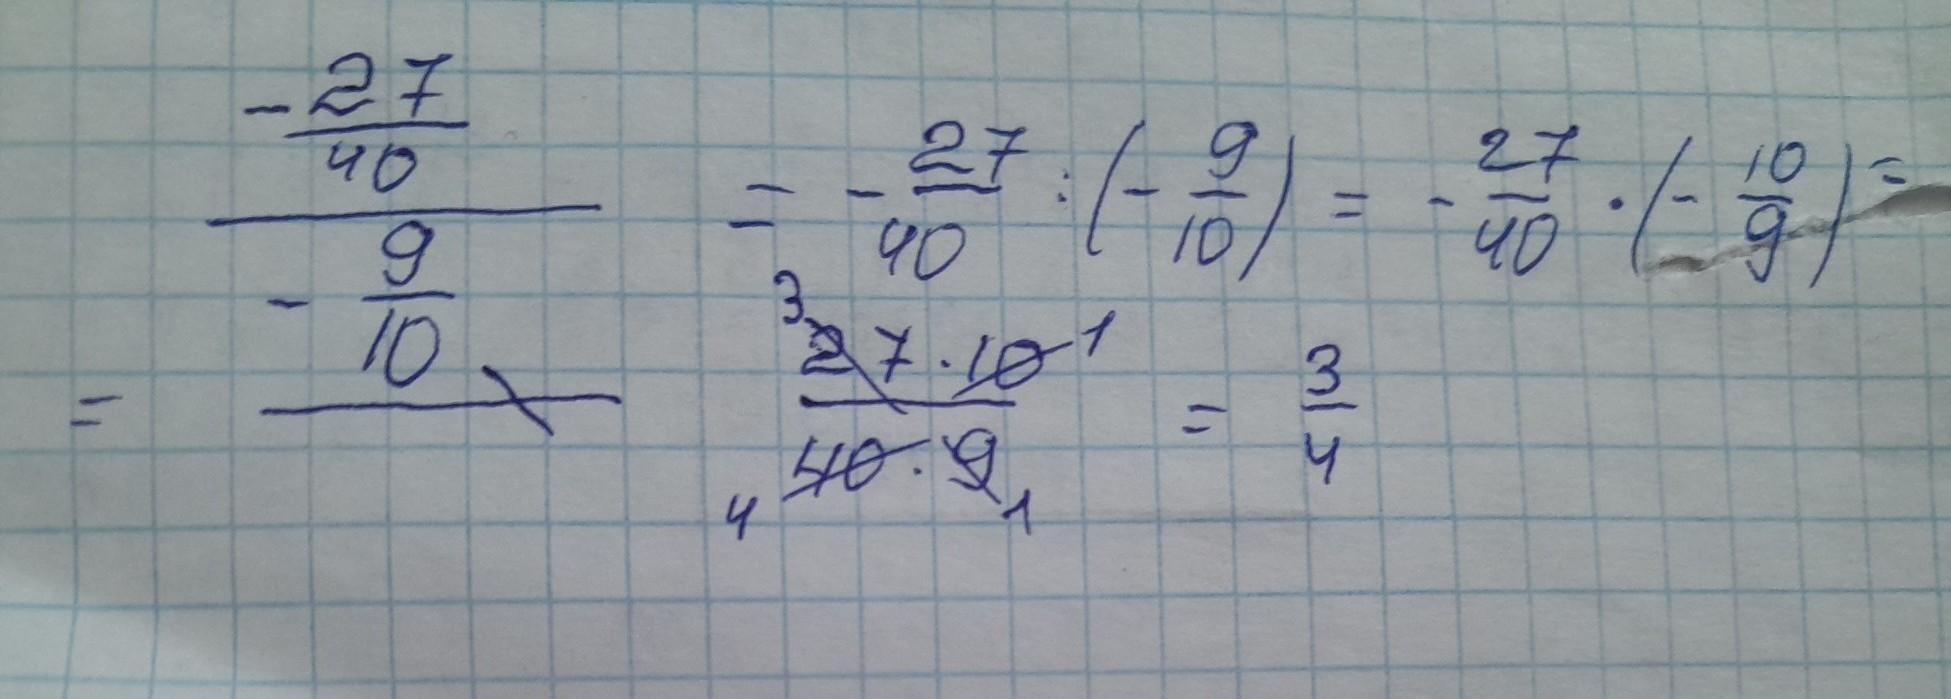 -27/40 / -9/10 = - 27/40 : (- 9/10) = - 27/40 · (- 10/9) =
= 3 27 · 10 1 / 4 40 · 9 1 = 3/4